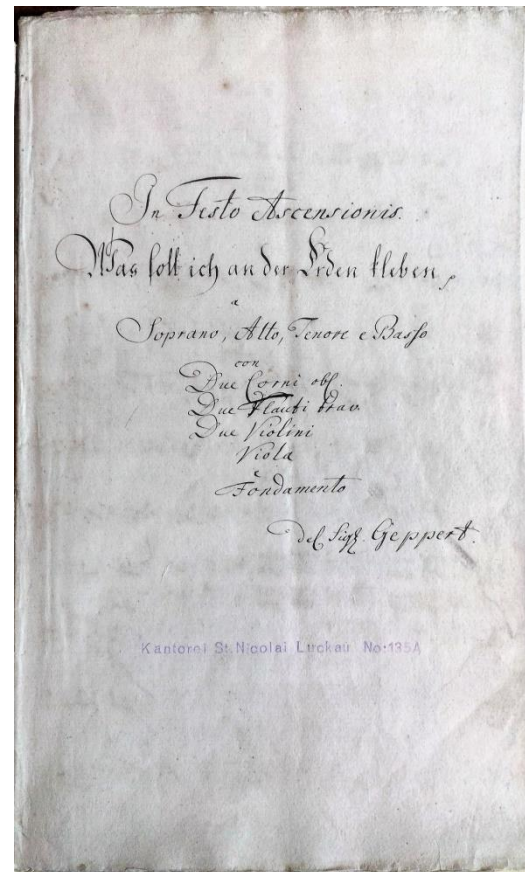 In Festo Ascensionis.
Was soll ich an der Erden kleben,
a
Soprano, Alto, Tenore e Basso
con
Due Corni obl.
Due Flauti trav.
Due Violini
Viola
e
Fondamento
del Sigr. Geppert.
Kantorei St. Nicolai Luckau No: 135A